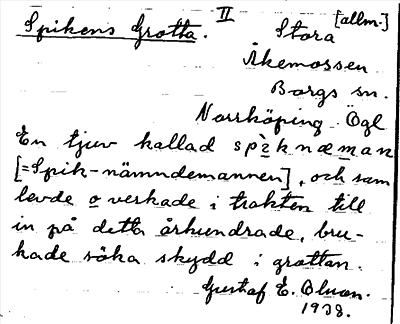 Spikens Grotta. II [allm.]
Stora
Åkemossen
Borgs sn.
Norrköping Ögl
En tjuv kallad spèknæman
[=Spik-nämndemannen], och sam
levde o verkade i trakten till
in på detta århundrade, bru-
kade söka skydd i grottan.
Gustaf E. Olsson.
1938.